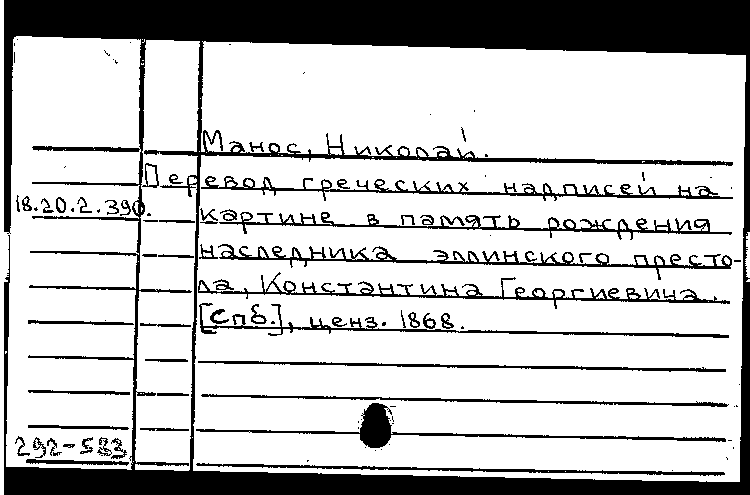 Манос, Николай.
Перевод греческих надписей на
18.20.2.390.
картине в память рождения
наследника эллинского престо-
ла, Константина Георгиевича.
[Спб.], ценз. 1868.
292-583